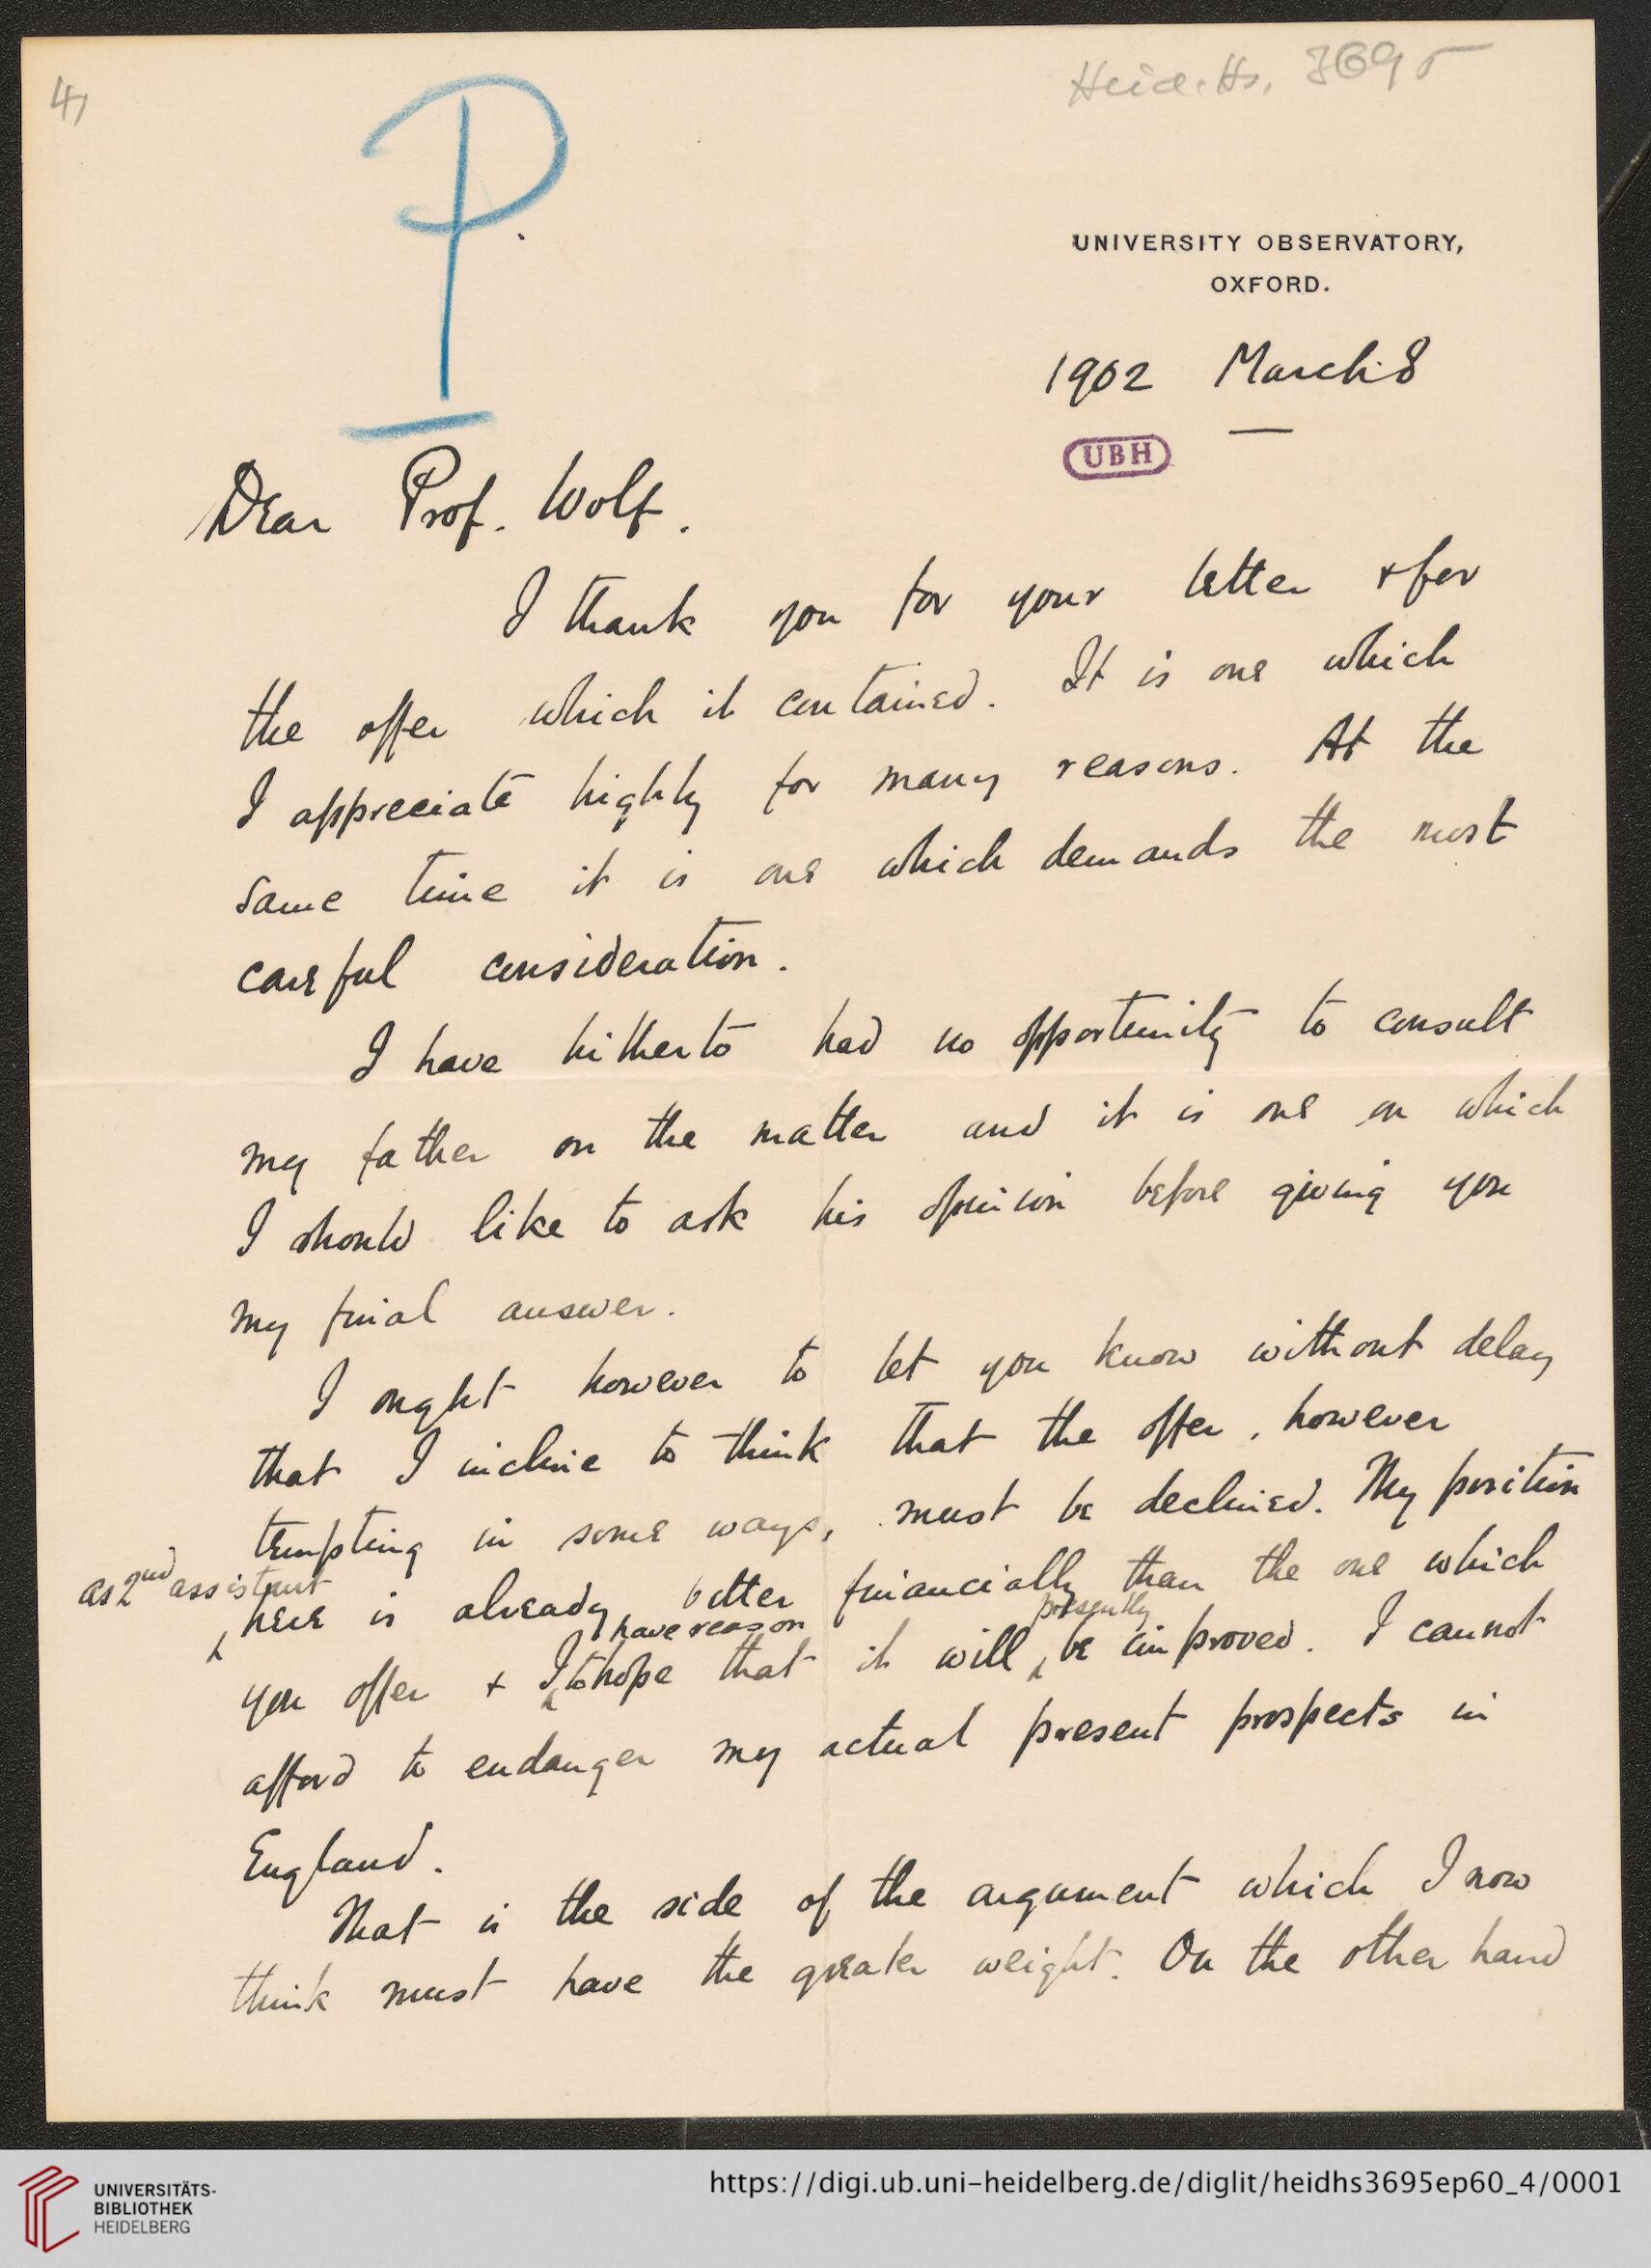 4
Heid. Hs. 3695
P
UNIVERSITY OBSERVATORY,
OXFORD.
1902 March 8
UBH
Dear Prof. Wolf.
I thank you for your letter & for
the offer which it contained. It is one which
I appreciate highly for many reasons. At the
same time it is one which demands the most
careful consideration.
I have hitherto had no opportunity to consult
my father on the matter and it is one on which
I should like to ask his opinion before giving you
my final answer.
I ought however to let you know without delay
that I incline to think that the offer, however
tempting in some ways, must be declined. My position
as 2nd assistant
here is already better financially than the one which
have reason presently
you offer & I to hope that it will be improved. I cannot
afford to endanger my actual present prospects in
England.
That is the side of the argument which I now
think must have the greater weight. On the other hand
UNIVERSITÄTS-
BIBLIOTHEK
HEIDELBERG
https://digi.ub.uni-heidelberg.de/diglit/heidhs3695ep60_4/0001